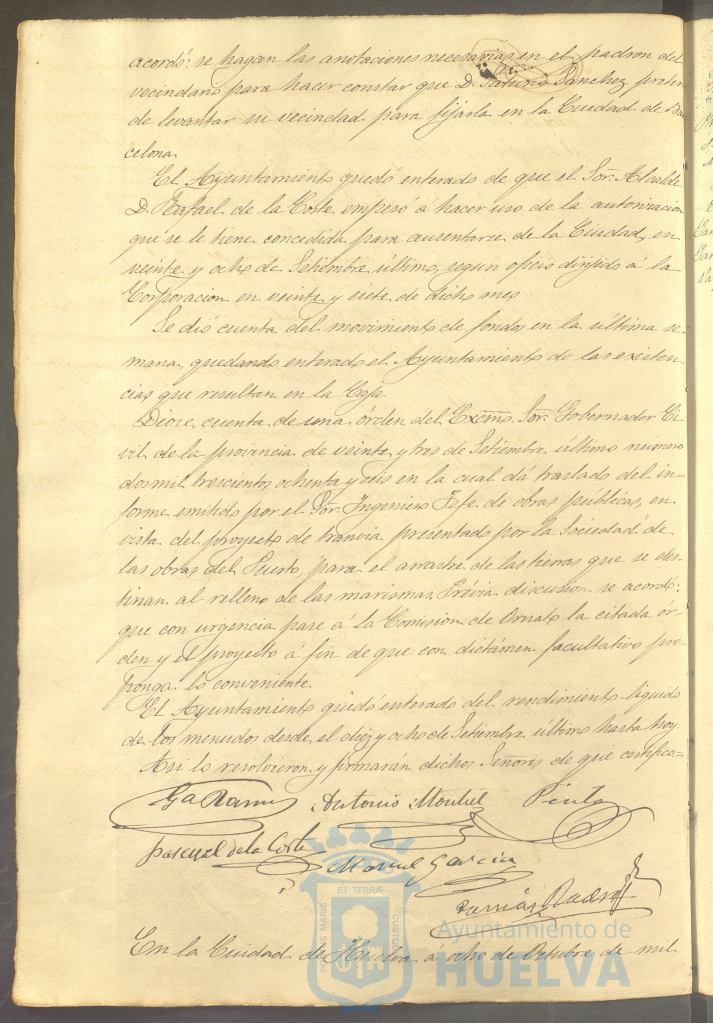 acordó: se hagan las anotaciones necesarias en el padron del
vecindario para hacer constar que D. Saturio Sanchez preten
de levantar su vecindad para fijarla en la Ciudad de Bar
celona.
El Ayuntamiento quedó enterado de que el Sor. Alcalde
D. Rafael de la Corte empezó a hacer uso de la autorizacion
que se le tiene concedida para ausentarse de la Ciudad, en
veinte y ocho de Setiembre último, segun oficio dirijido á la
Corporacion en veinte y siete de dicho mes
Se dió cuenta del movimiento de fondos en la última se
mana, quedando enterado el Ayuntamiento de las existen
cias que resultan en la Caja
Diose cuenta de una órden del Excmo. Sor. Gobernador Ci
vil de la provincia de veinte y tres de Setiembre último numero
dos mil trescientos ochenta y seis en la cual dá traslado del in
forme emitido por el Sor. Ingeniero Jefe de obras publicas, en
vista del proyecto de tranvia presentado por la Sociedad de
las obras del Puerto para el arrastre de las tierras que se des
tinan al relleno de las marismas. Prévia discusion se acordó:
que con urgencia pase á la Comision de Ornato la citada ór
den y el proyecto á fin de que con dictámen facultativo pro
ponga lo conveniente.
El Ayuntamiento quedó enterado del rendimiento liquido
de los menudos desde el diez y ocho de Setiembre último hasta hoy.
Asi lo resolvieron y firmaran dichos Señores de que certifico=
Antonio
Pascual de la Corte
Manuel Garcia
En la Ciudad de Huelva á ocho de Octubre de mil
PORTUS MARIS ET TERRÆ CUSTODIA
Ayuntamiento de
HUELVA